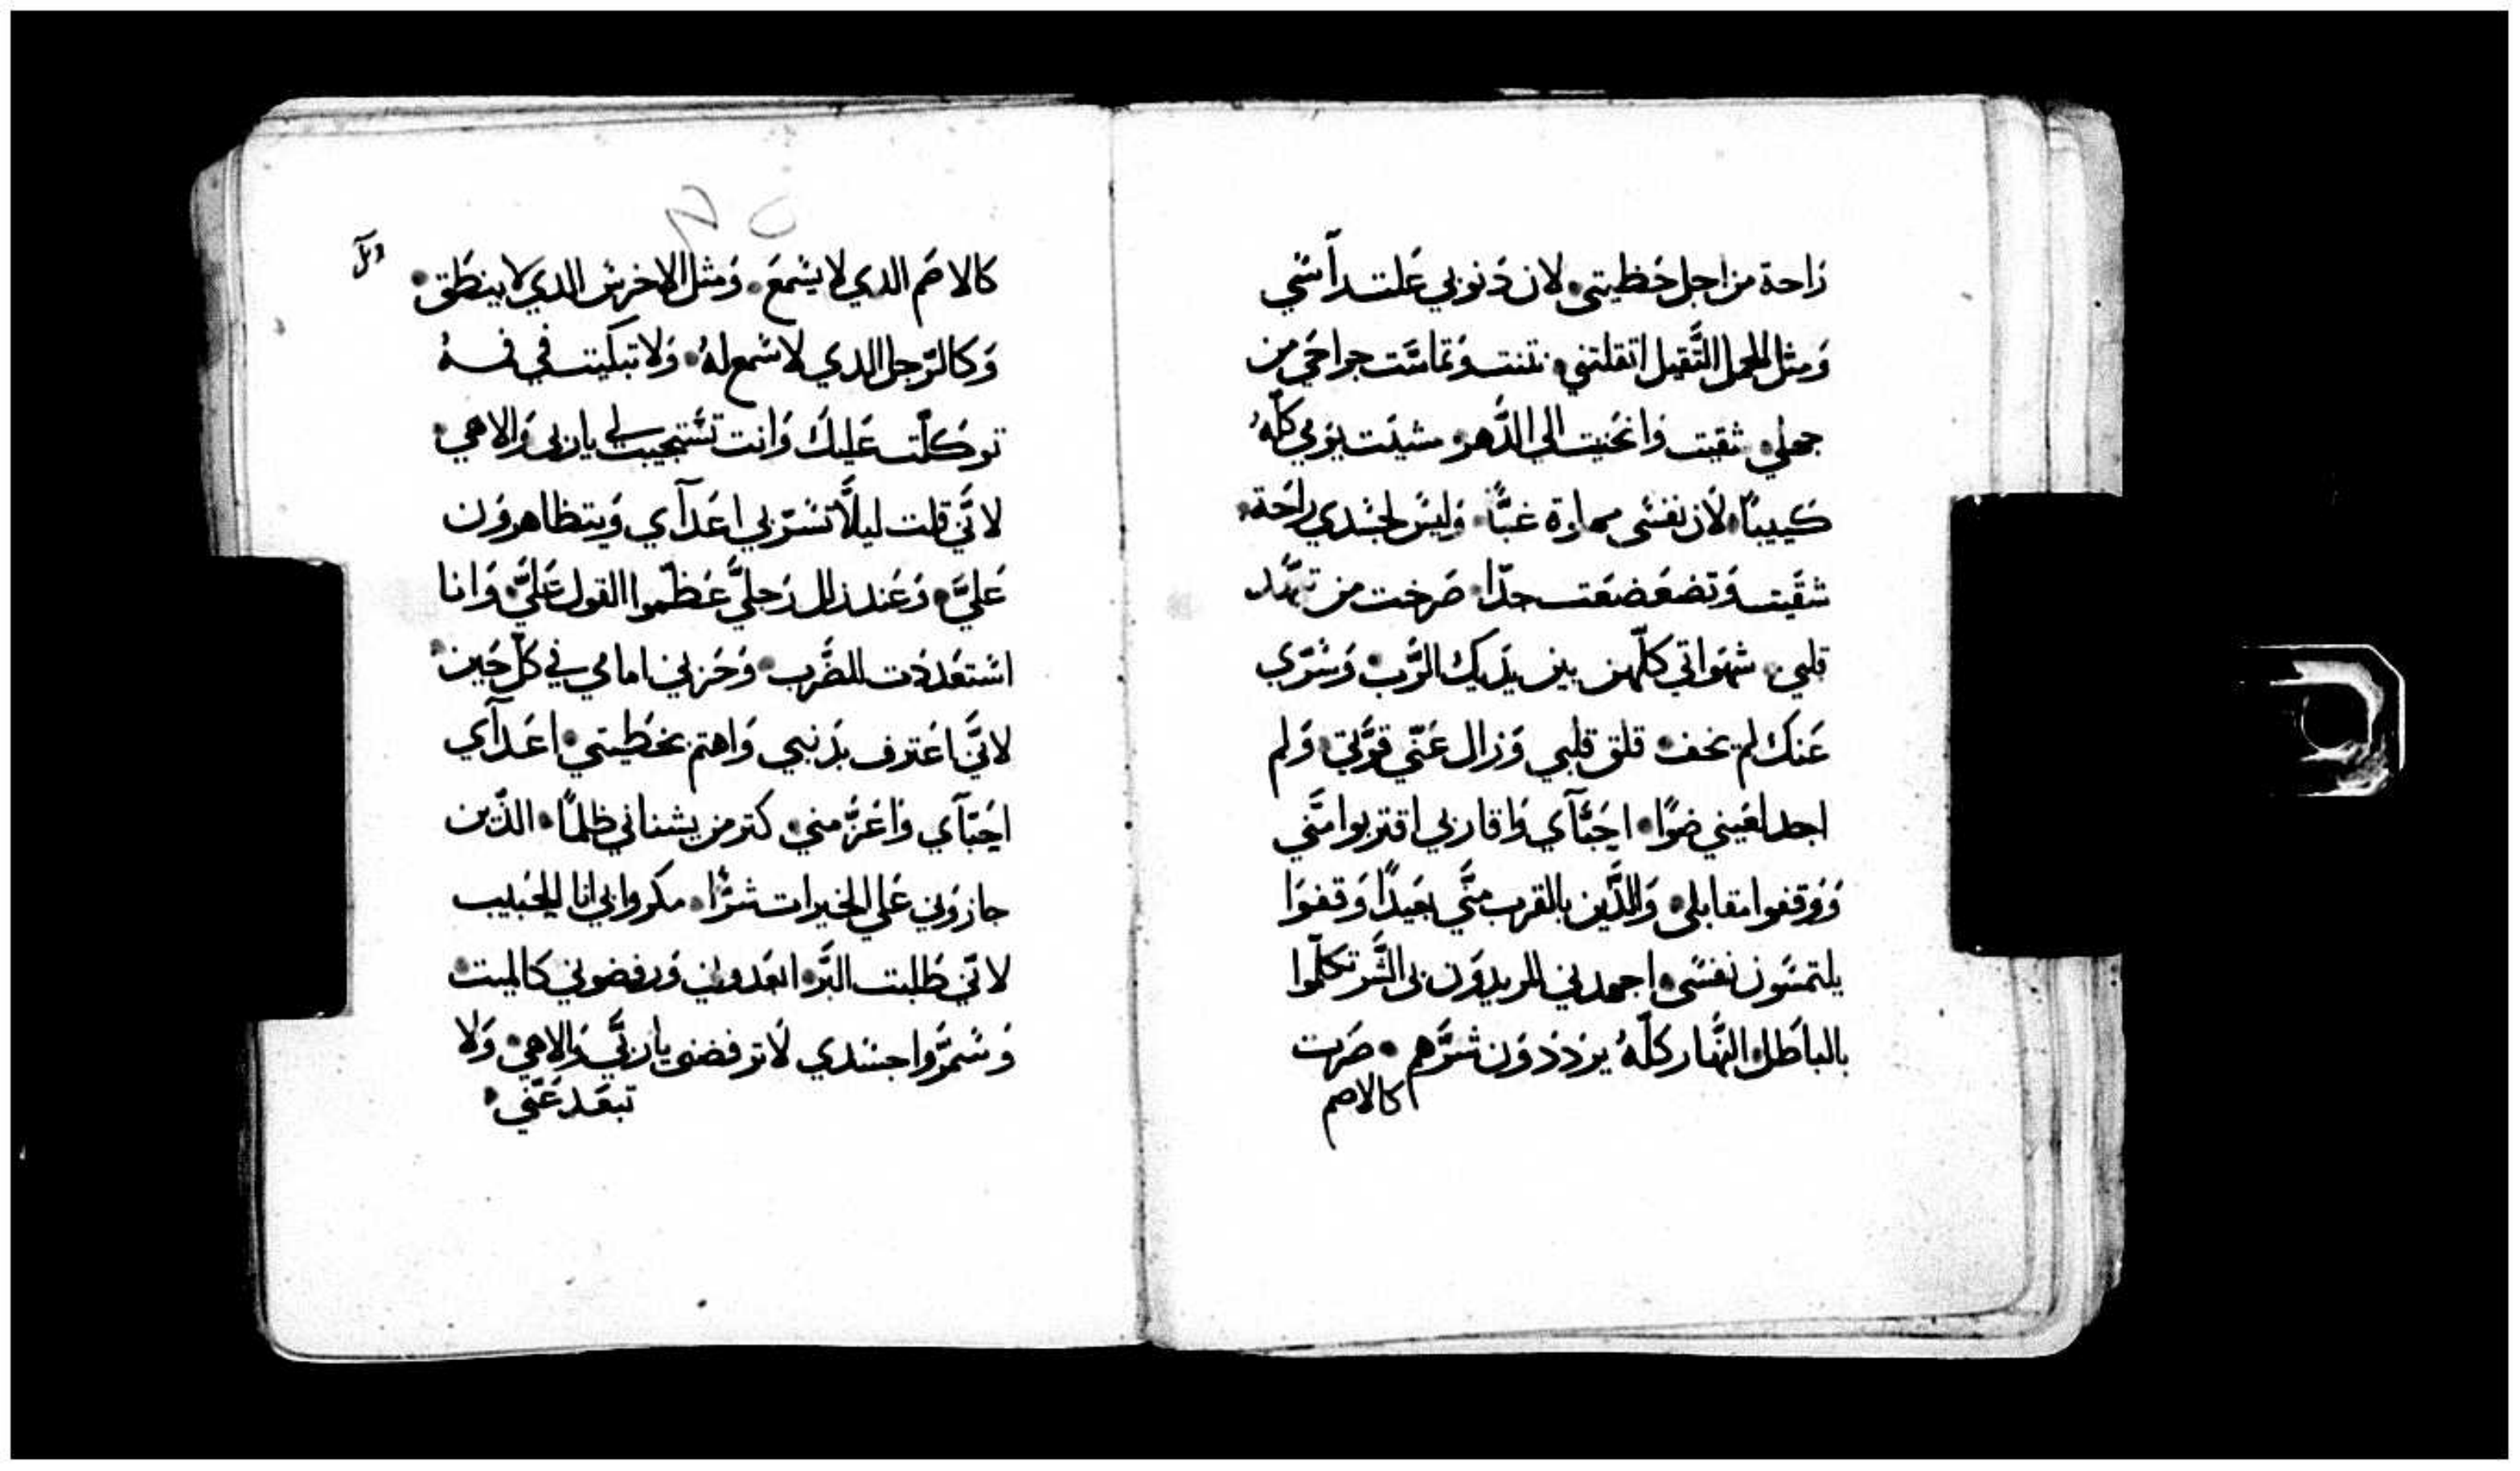 راحة من اجل خطيتي. لان دنوبي علت راسي
ومثل الحمل التقيل اتقلتني. نتنت وقاست جراحي من
جهلي. شقيت وانحنيت الي الدهر. مشيت يومي كلّه
كييبًا. لان نفسي مملوة غبًّا. وليس لجسدي راحة.
شقيت وتضعضعت جدّا. صرخت من تنهّد
قلبي. شهواتي كلّهن بين يديك الرّب. وسرّي
عنك لم يخف. قلق قلبي وزال عنّي قوّتي. ولم
اجد لعيني ضوًا. احبّآي واقاربي اقتربوا منّي
ووقفوا مقابلي. والدّين بالقرب منّي بعيدًا وقفوا
يلتمسون نفسي. اجهدني المريدون لي الشّر تكلّموا
بالباطل. النّهار كلّهُ يرددون شرّهم. صرت
كالاصم
كالاصم الدي لا يسمع. ومثل الاخرس الدي لا ينطق.
وكالرّجل الدي لا سمع لهُ. ولا تبكيت في فمهُ
توكلّت عليك وانت تستجيب لي يا ربي والاهي.
لانّي قلت ليلّا تسرّ بي اعدآي ويتظاهرون
عليَّ. وعند زلل رجليَّ عظّموا القول عليَّ. وانا
استعددت للضّرب. وحزني امامي في كلّ حين.
لانّي اعترف بدنبي واهتم بخطيتي. اعدآي
احيّآي واعزّ مني. كتر من يشناني ظلمًا. الدّين
جازوني علي الخيرات شرًّا. مكروا بي انا الحبيب
لانّي طلبت البّر. ابعدوني ورفضوني كالميت.
وسمرّوا جسدي لا ترفضني يا ربّي والاهي. ولا
تبعد عنّي.